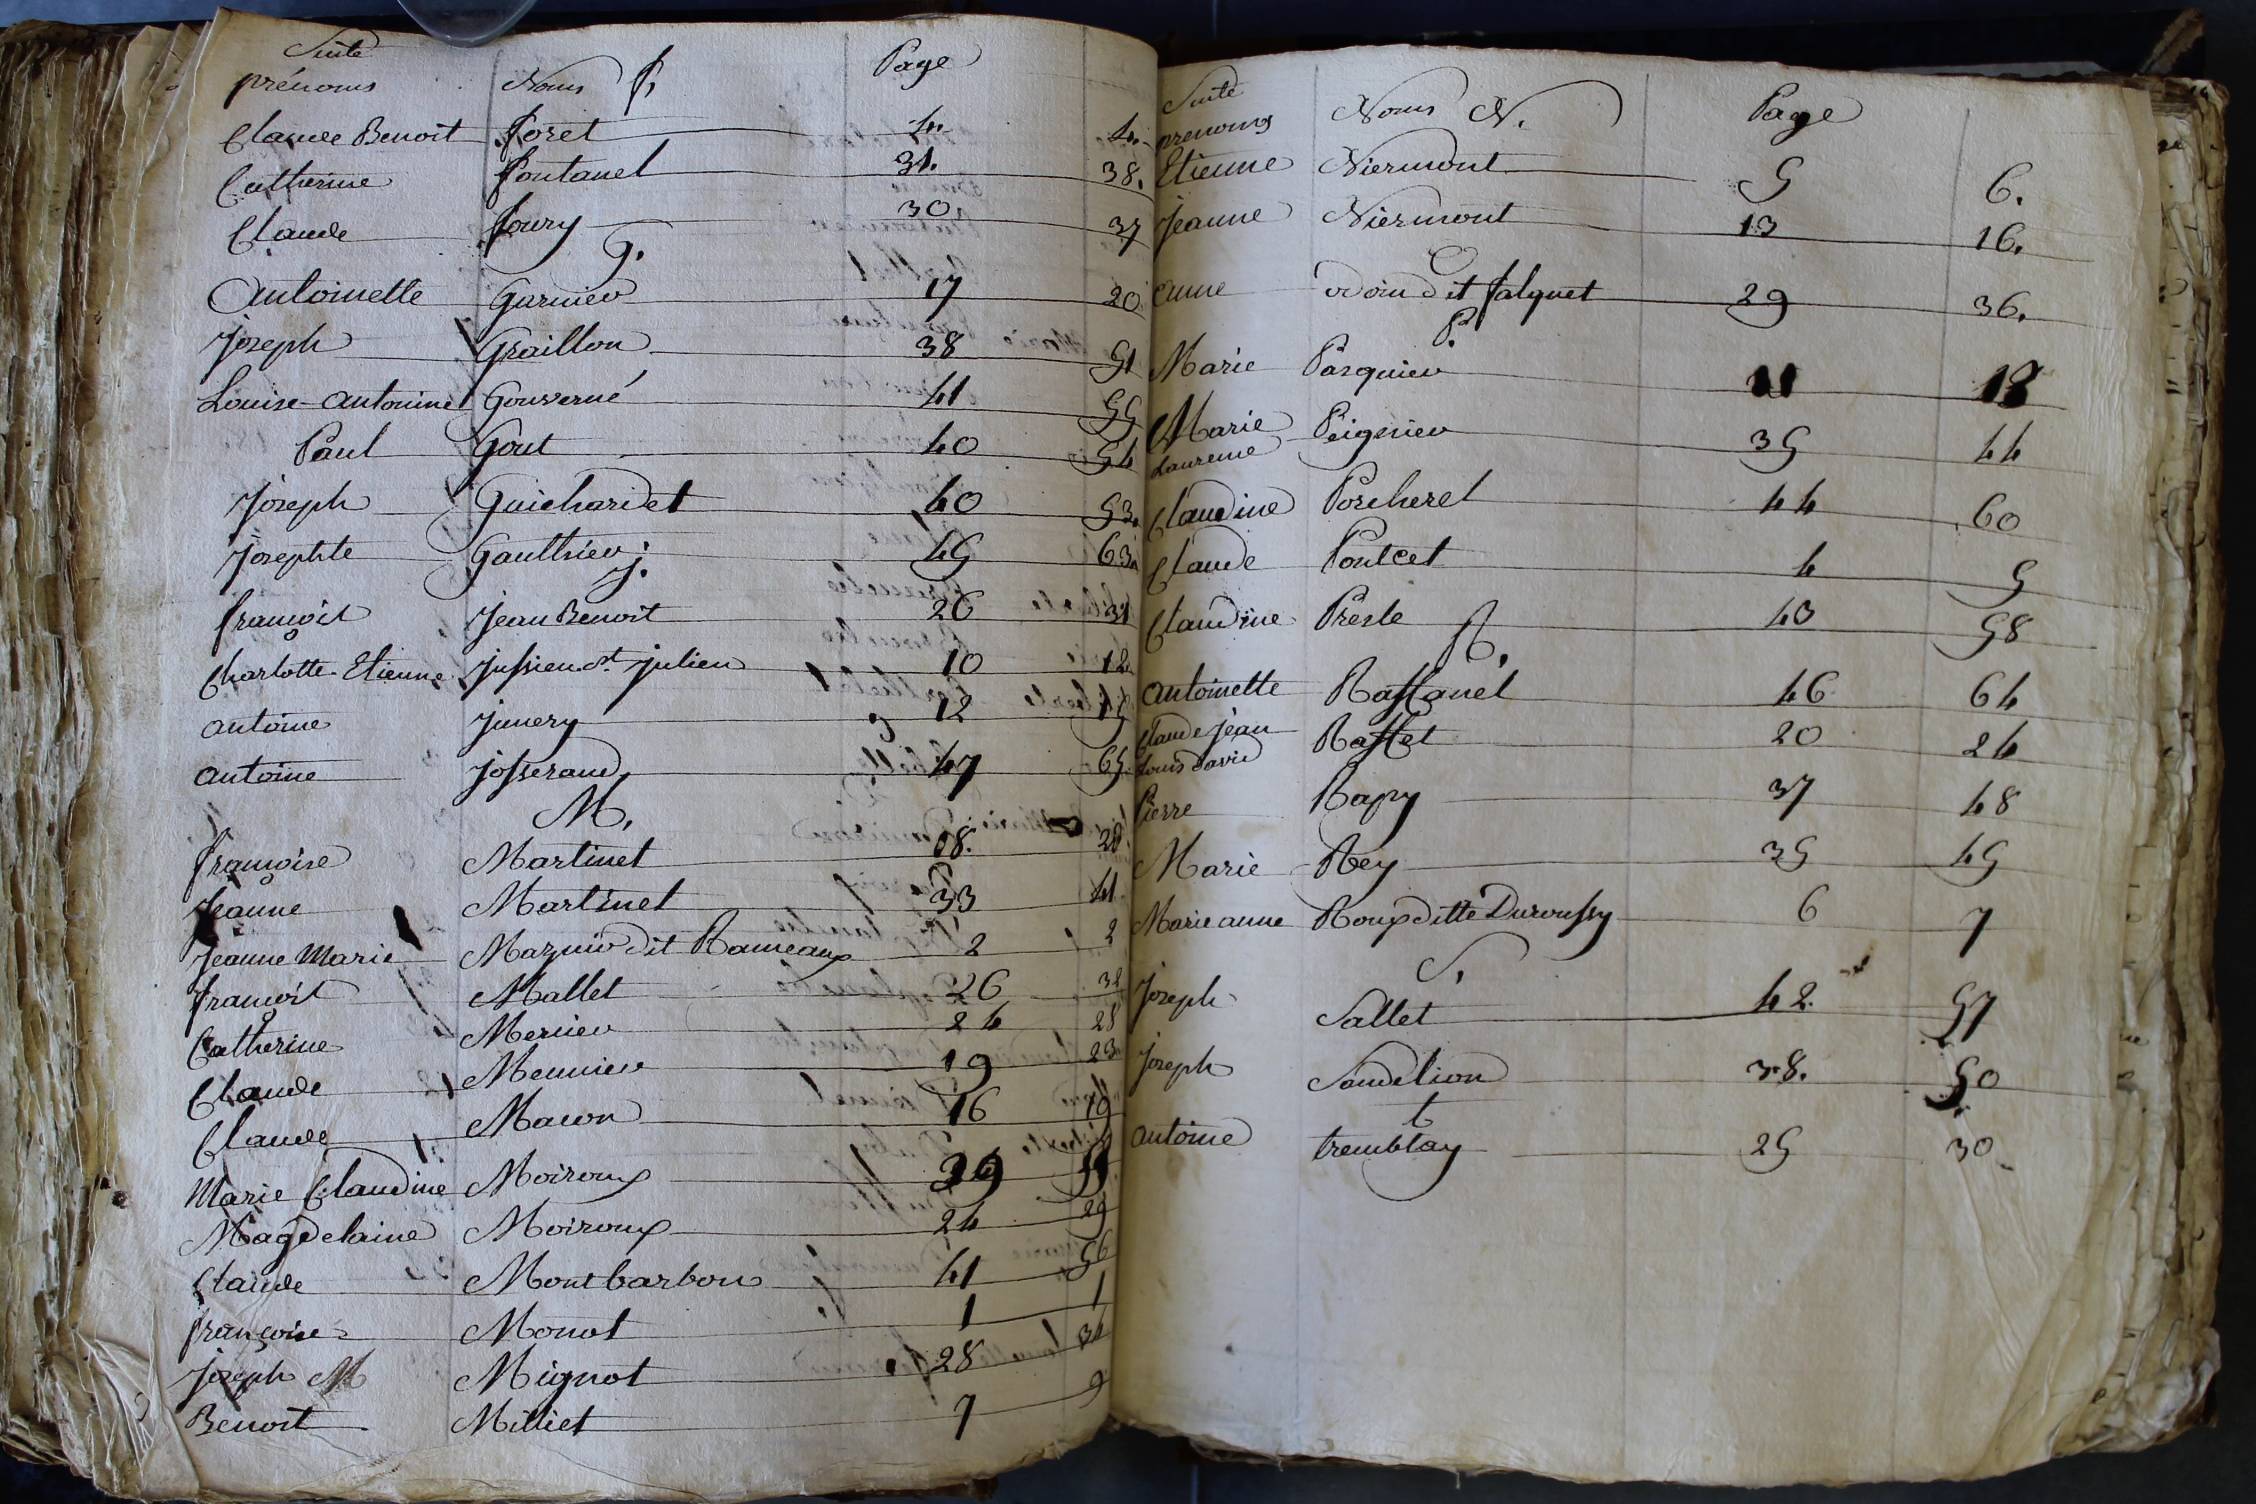 Suite
prénoms Noms f, Page
Claude Benoit foret 4. 4.
Catherine fontanel 31. 38.
Claude foury 30. 37
G.
Antoinette Garnier 17 20
Joseph Graillon 38 51
Louise-antonine Gouverné 41 55
Paul Gout 40 54
Joseph Guichardet 40 53.
Josephte Gauthier 45 63.
J.
françois Jean Benoit 26 31
Charlotte-Etienne Jussieu st julien 10 12
antoine Junery 12 15
antoine Josserand 47 65.
M,
françoise Martinet 08. 20.
Jeanne Martinet 33 41
Jeanne Marie Mazuir dit Rameaux 2 2
françois Mallet 26 32
Catherine Mercier 24 28
Claude Meunier 19 23
Claude Macon 16 19
Marie Claudine Moiroux 39
Magdelaine Moiroux 24 29
Claude Montbarbon 41 56
françoise Monot 1 1
Joseph M Mignot 28 34
Benoit Milliet 7 9
Suite
prenoms Noms N. Page
Etienne Niermont 5 6.
Jeanne Niermont 13 16.
O
anne odoin dit falquet 29 36.
P.
Marie Pasquier 11 13
Marie Peignier 35 44
Laurence
Claudine Porcheret 44 60
Claude Pontcet 4 5
Claudine Presle 43 58
R,
Antoinette Raffanel 46 64
Claude Jean Raffet 20 24
Louis david
Pierre Rapy 37 48
Marie Rey 35 45
Marie anne Roux ditte Duroussy 6 7
S,
Joseph Sallet 42. 57
Joseph Sandelion 38. 50
t
Antoine tremblay 25 30